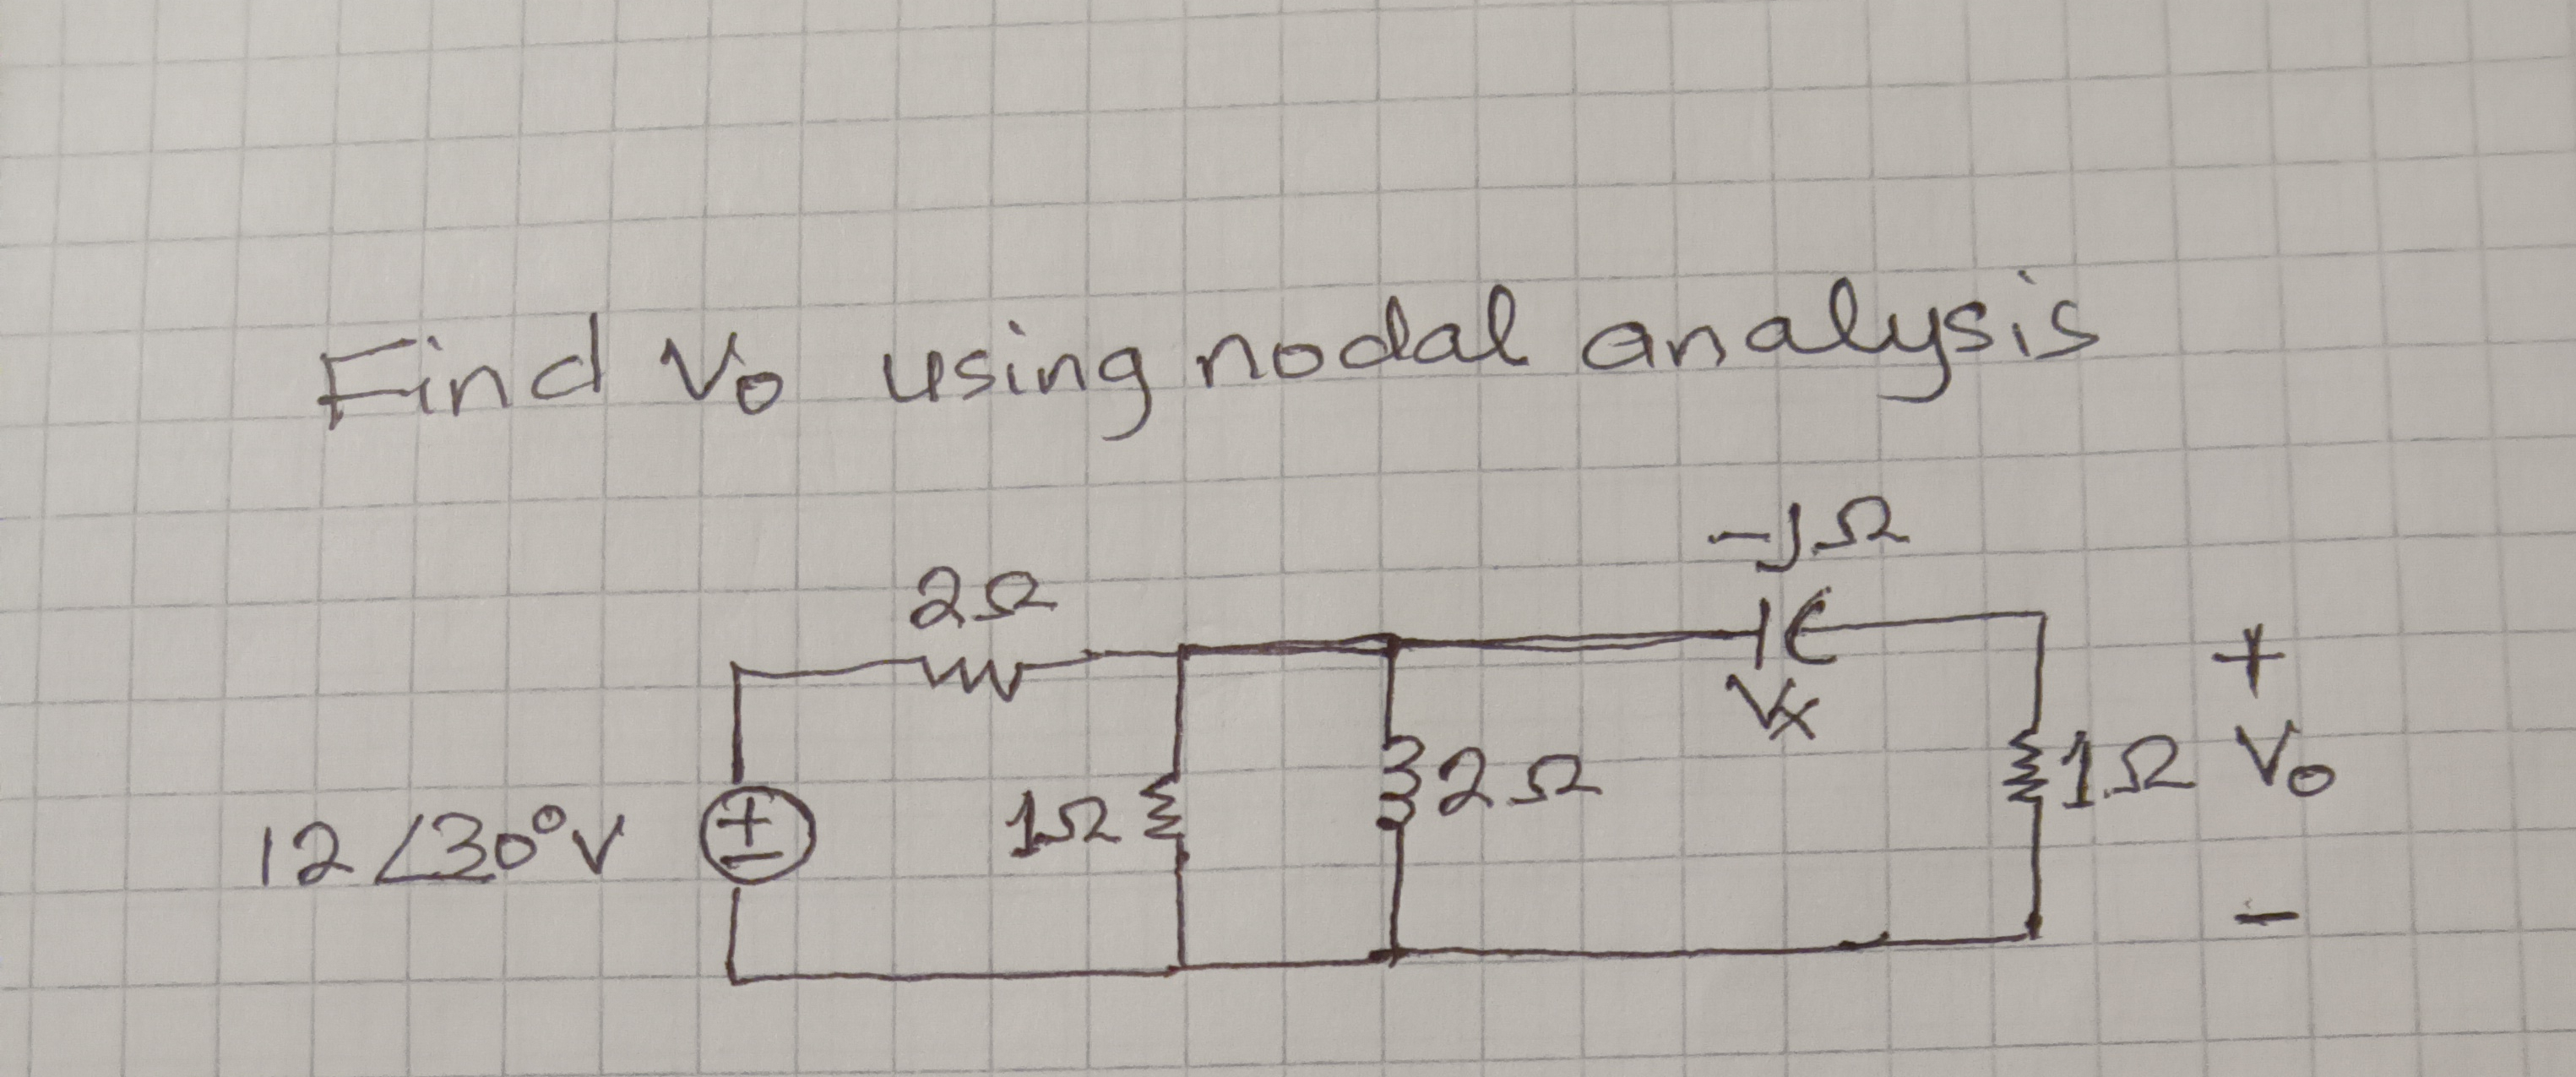 Find Vo using nodal analysis
-jΩ
2Ω
Vx
+
12∠30°V
+
-
1Ω
2Ω
1Ω
Vo
-